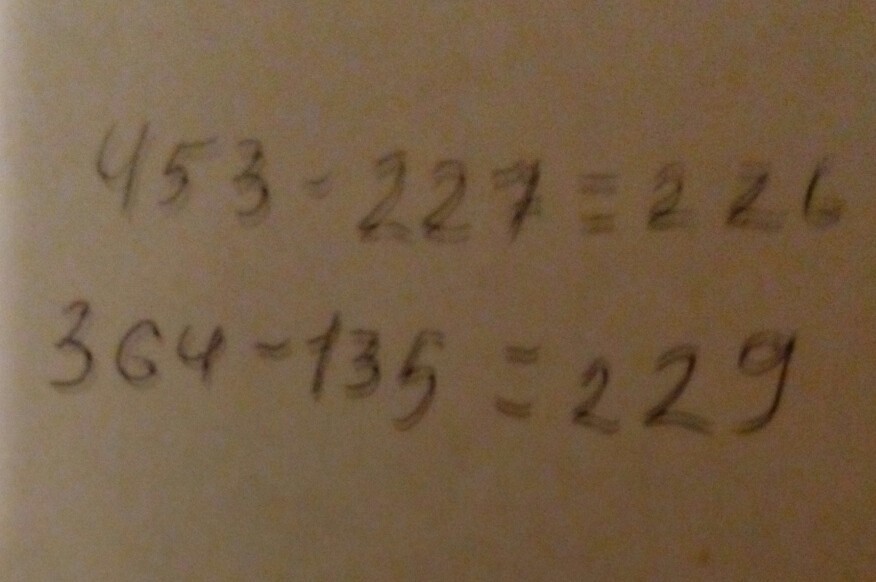 453-227=226
364-135=229